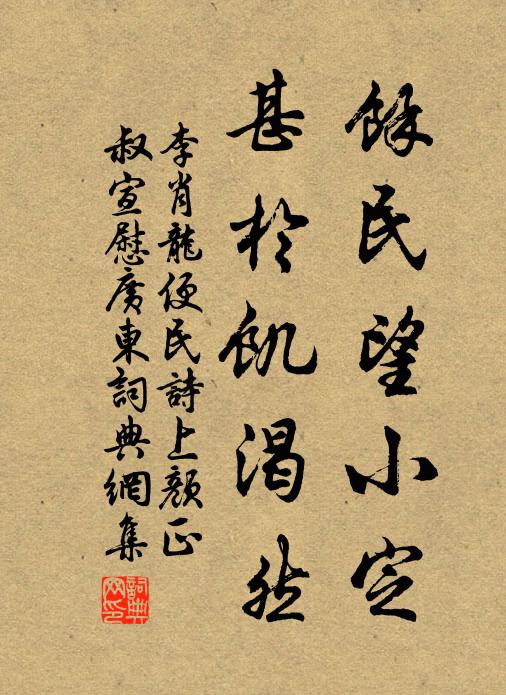 餘民望小定
甚於飢渴然
李肖龍便民詩上顏正
叔宣慰廣東詞典網集
詞典網印